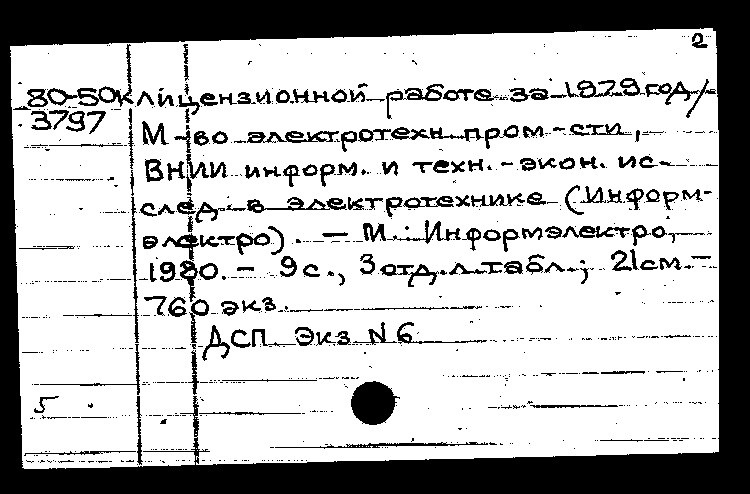 2
80-50к лицензионной работе за 1979 год/
3797 М-во электротехн. пром-сти,
ВНИИ информ. и техн.-экон. ис-
след. в электротехнике (Информ-
электро). — М.: Информэлектро,
1980. - 9с., 3 отд. л. табл.; 21см. -
760 экз.
ДСП Экз N6
5